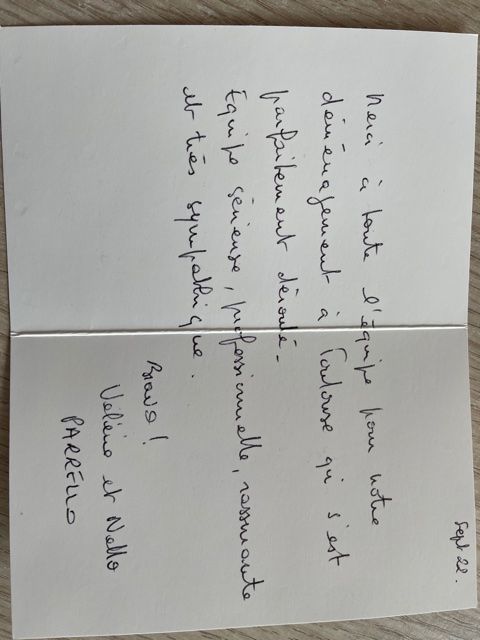 Sept 22.
Merci à toute l'équipe pour notre
déménagement à Toulouse qui s'est
parfaitement déroulé.
Equipe sérieuse, professionnelle, rassurante
et très sympathique.
Bravo!
Valérie et Nello
PARRELLO